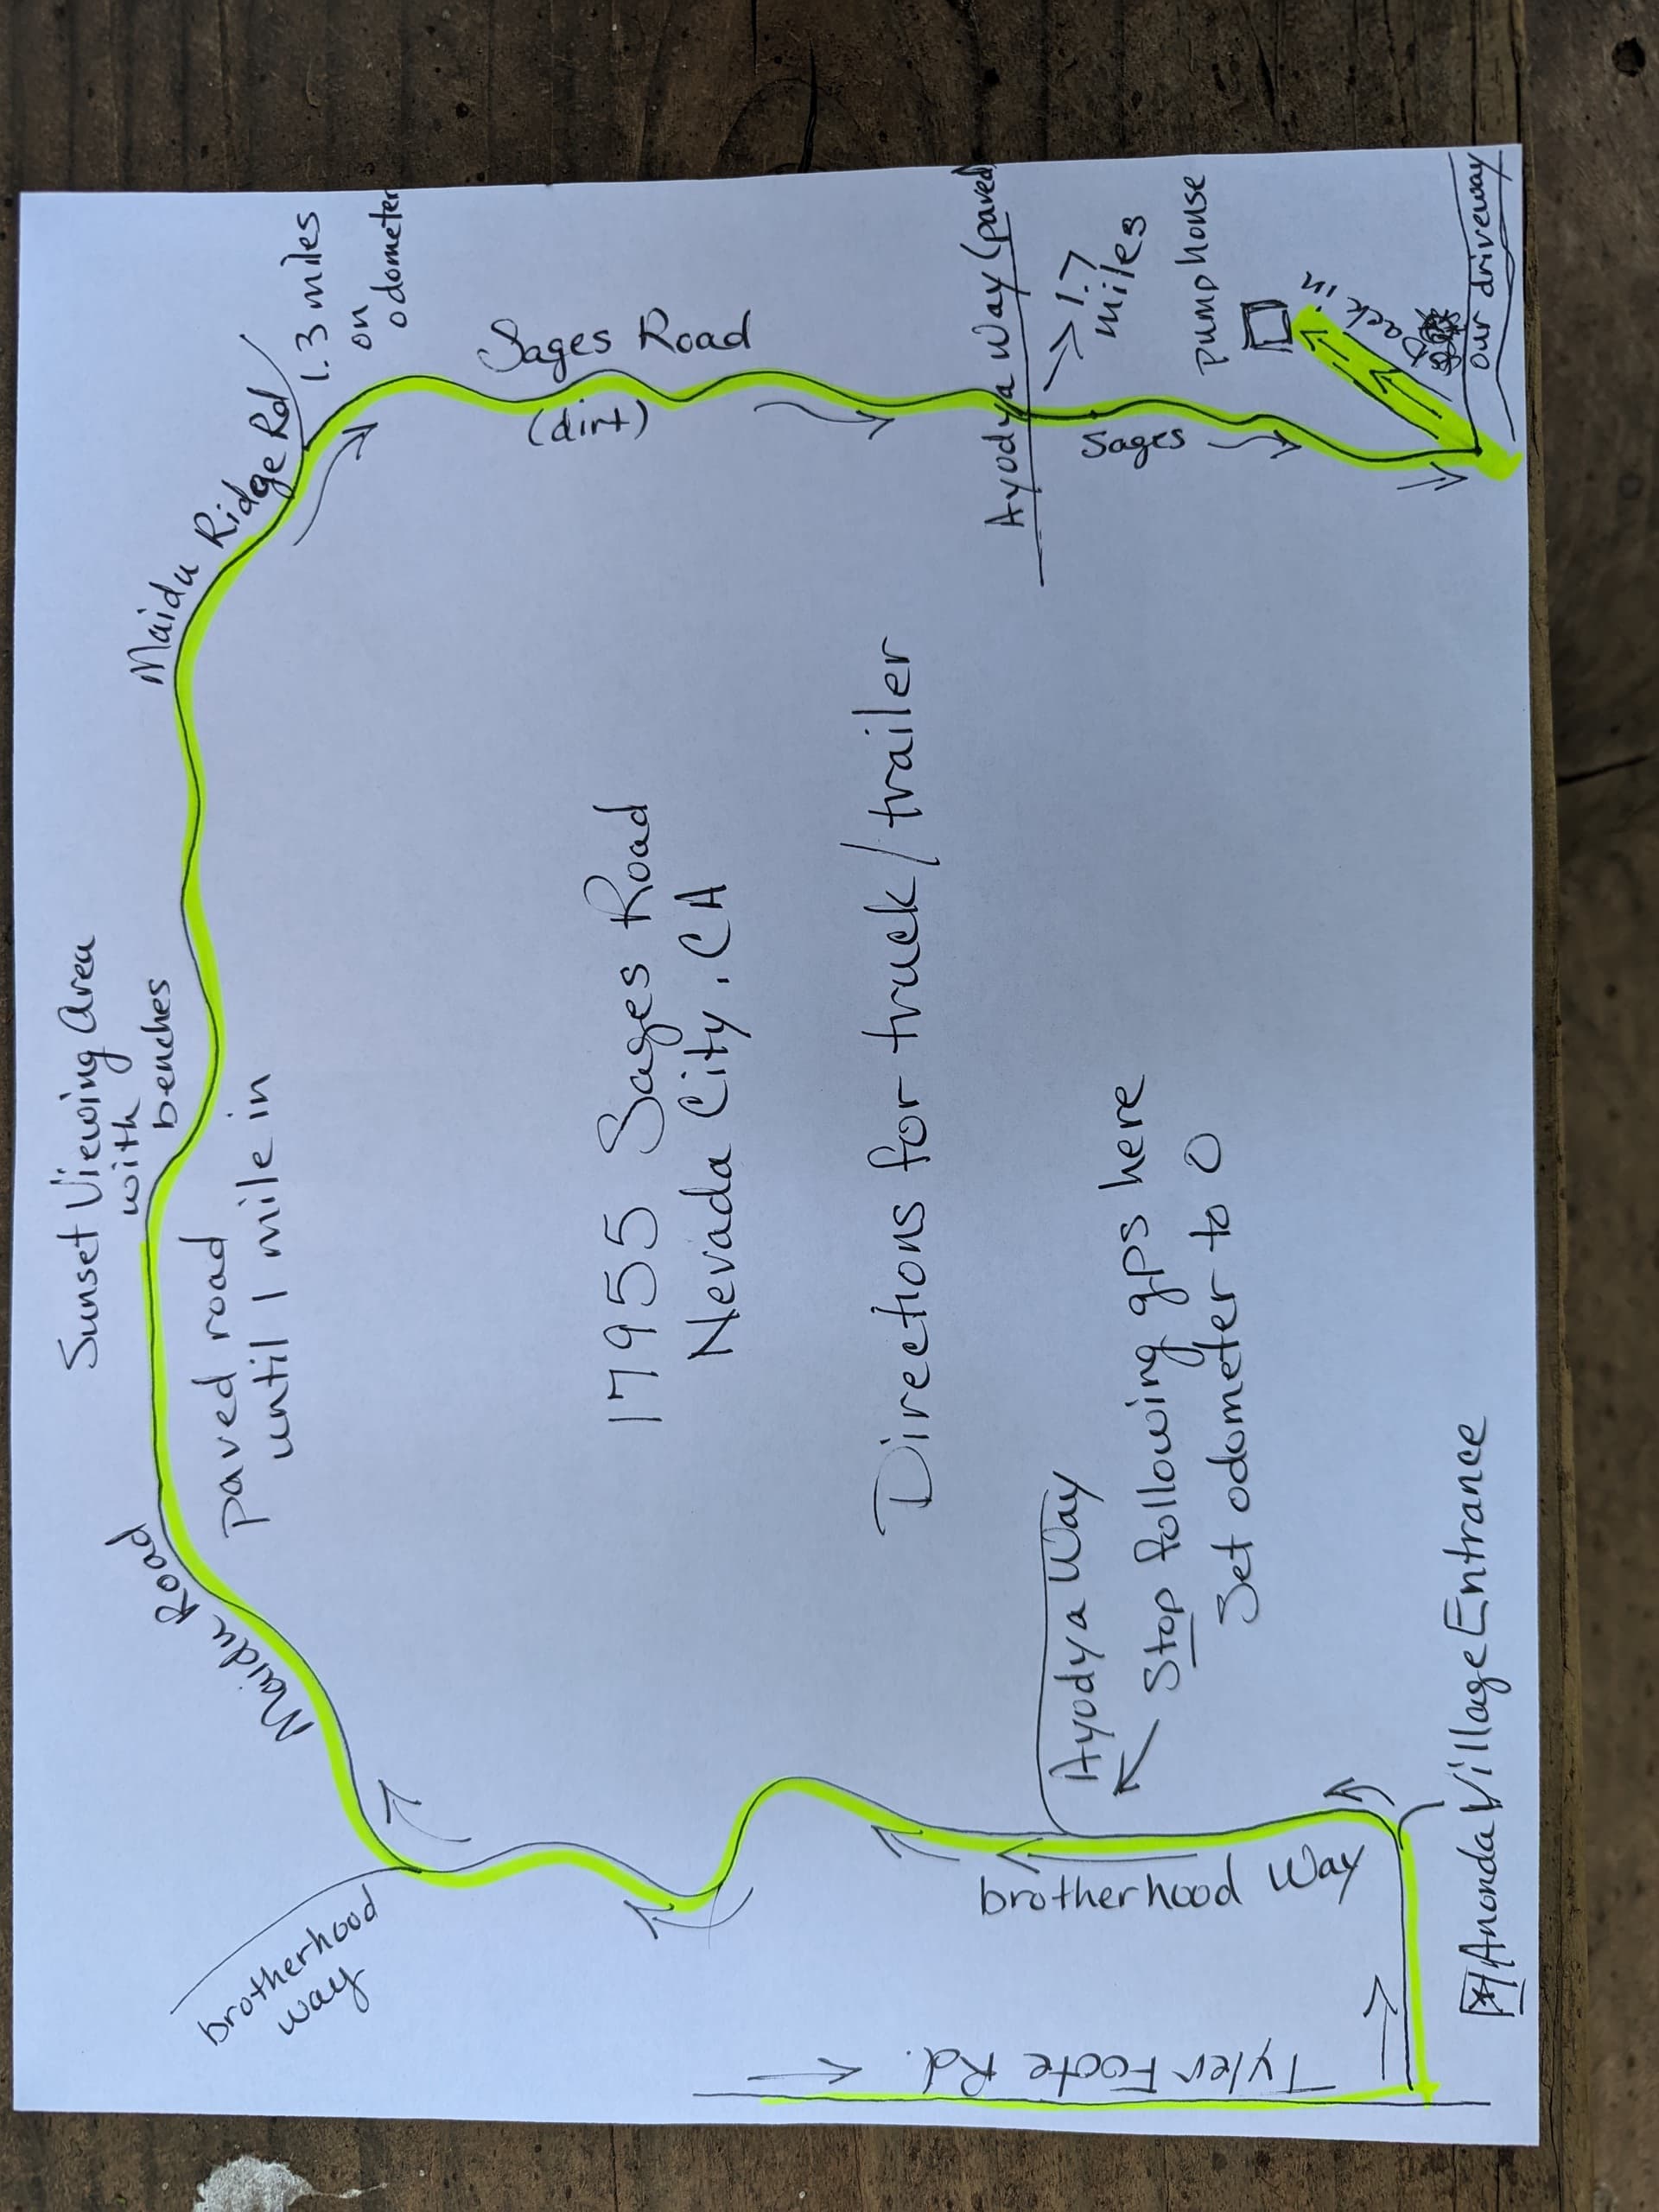 Sunset Viewing Area
with
benches
Maidu Road
paved road
until 1 mile in
Maidu Ridge Rd
1.3 miles
on
odometer
brotherhood
way
Sages Road
(dirt)
17955 Sages Road
Nevada City, CA
Directions for truck/trailer
Ayodya Way (paved)
1.7
miles
Sages
pumphouse
Back in
our driveway
Ayodya Way
Stop following gps here
Set odometer to 0
brotherhood Way
Tyler Foote Rd.
Ananda Village Entrance